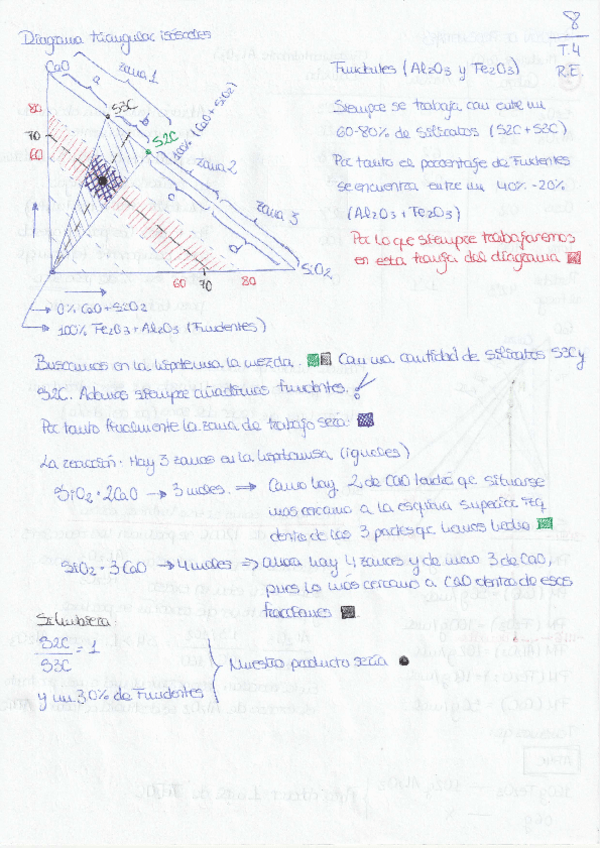 8
T.4
R.E.
Diagrama triangular isósceles
CaO
zona 1
a
S3C
b
S2C
100% (CaO + SiO2)
zona 2
c
zona 3
d
SiO2
80
70
60
60
70
80
0% CaO + SiO2
100% Fe2O3 + Al2O3 (Fundentes)
Fundentes (Al2O3 y Fe2O3)
Siempre se trabaja con entre un
60-80% de Silicatos (S2C + S3C)
Por tanto el porcentaje de Fundentes
se encuentra entre un 40% - 20%
(Al2O3 + Fe2O3)
Por lo que siempre trabajaremos
en esta franja del diagrama
Buscamos en la hipotenusa la mezcla con una cantidad de Silicatos S3C y
S2C. Además siempre añadimos fundentes.
Por tanto finalmente la zona de trabajo será:
La reacción: Hay 3 zonas en la hipotenusa (iguales)
SiO2 · 2CaO → 3 moles. ⇒ Como hay 2 de CaO tendrá q. situarse
más cercano a la esquina superior izq.
dentro de las 3 partes q. hemos hecho
SiO2 · 3 CaO → 4 moles ⇒ ahora hay 4 zonas y de nuevo 3 de CaO,
pues lo más cercano a CaO dentro de esas
fracciones
Si hubiera:
S2C
/
S3C = 1
y un 30% de Fundentes
Nuestro producto sería